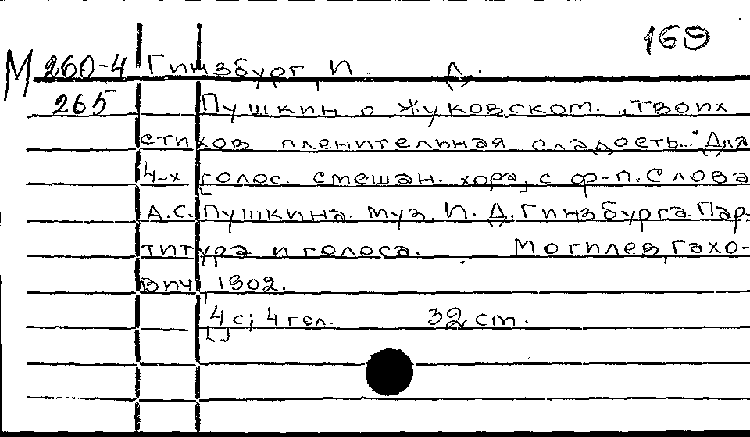 169
М 260-4 Гинзбург, И. Д.
265 Пушкин о Жуковском. „Твоих
стихов пленительная сладость..." Для
4-х голос. смешан. хора, с ф-п. Слова
А.С. Пушкина. муз. И. Д. Гинзбурга. Пар-
титура и голоса. Могилев, Гахо-
вич, 1902.
[4] с; 4 гол. 32 cm.